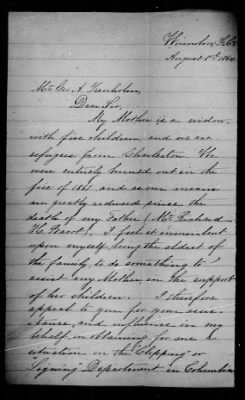 Winnsboro
August 1st 1864
Mr Geo. A. Trenholm,
Dear Sir,
My Mother is a widow
with five children, and we are
refugees from Charleston. We
were entirely burned out in the
fire of 1861 and as our means
are greatly reduced since the
death of my Father (Mr
H. ), I feel it incumbent
upon myself, being the eldest of
the family to do something to
assist my Mother in the support
of her children. I therefore
appeal to you for your
and influence in my
behalf in obtaining for me a
situation in the "Clipping" or
Signing" Department in Columbia